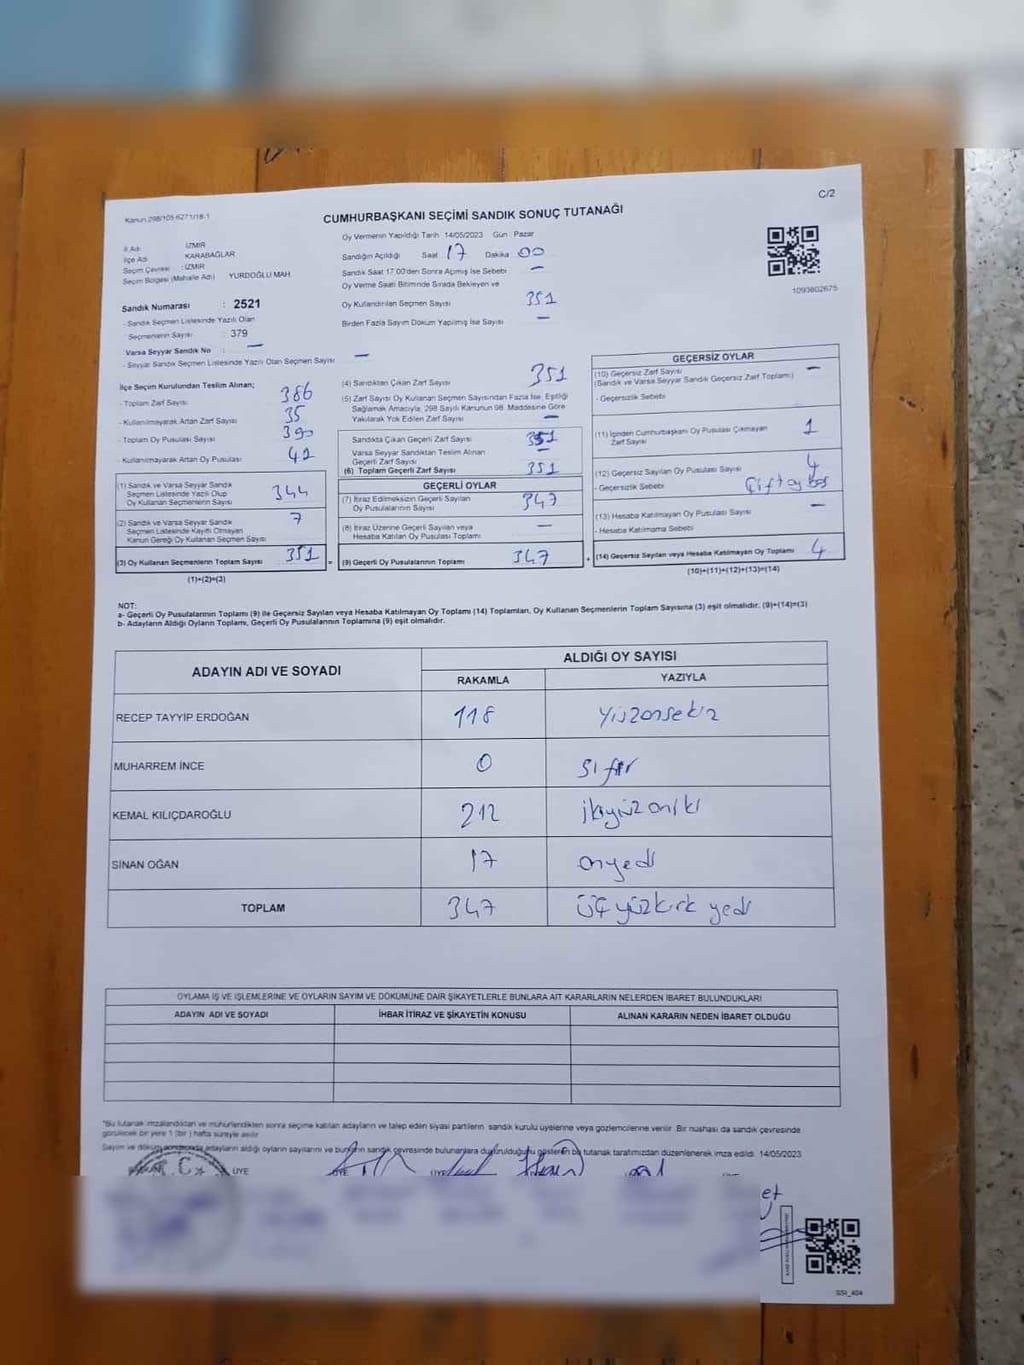 C/2
Kanun 298/105-6271/18-1
CUMHURBAŞKANI SEÇİMİ SANDIK SONUÇ TUTANAĞI
İl Adı : İZMİR
İlçe Adı : KARABAĞLAR
Seçim Çevresi : İZMİR
Seçim Bölgesi (Mahalle Adı) YURDOĞLU MAH.
Sandık Numarası : 2521
- Sandık Seçmen Listesinde Yazılı Olan
Seçmenlerin Sayısı : 379
Varsa Seyyar Sandık No : —
- Seyyar Sandık Seçmen Listesinde Yazılı Olan Seçmen Sayısı —
Oy Vermenin Yapıldığı Tarih 14/05/2023 Gün Pazar
Sandığın Açıldığı Saat 17 Dakika 00
Sandık Saat 17.00'den Sonra Açılmış İse Sebebi —
Oy Verme Saati Bitiminde Sırada Bekleyen ve
Oy Kullandırılan Seçmen Sayısı 351
Birden Fazla Sayım Döküm Yapılmış İse Sayısı —
1093802675
İlçe Seçim Kurulundan Teslim Alınan;
- Toplam Zarf Sayısı 386
- Kullanılmayarak Artan Zarf Sayısı 35
- Toplam Oy Pusulası Sayısı 390
- Kullanılmayarak Artan Oy Pusulası 42
(1) Sandık ve Varsa Seyyar Sandık
Seçmen Listesinde Yazılı Olup
Oy Kullanan Seçmenlerin Sayısı 344
(2) Sandık ve Varsa Seyyar Sandık
Seçmen Listesinde Kayıtlı Olmayan
Kanun Gereği Oy Kullanan Seçmen Sayısı 7
(3) Oy Kullanan Seçmenlerin Toplam Sayısı 351
(1)+(2)=(3)
(4) Sandıktan Çıkan Zarf Sayısı 351
(5) Zarf Sayısı Oy Kullanan Seçmen Sayısından Fazla İse, Eşitliği
Sağlamak Amacıyla, 298 Sayılı Kanunun 98. Maddesine Göre
Yakılarak Yok Edilen Zarf Sayısı —
Sandıkta Çıkan Geçerli Zarf Sayısı 351
Varsa Seyyar Sandıktan Teslim Alınan
Geçerli Zarf Sayısı —
(6) Toplam Geçerli Zarf Sayısı 351
GEÇERLİ OYLAR
(7) İtiraz Edilmeksizin Geçerli Sayılan
Oy Pusulalarının Sayısı 347
(8) İtiraz Üzerine Geçerli Sayılan veya
Hesaba Katılan Oy Pusulası Toplamı —
(9) Geçerli Oy Pusulalarının Toplamı 347
GEÇERSİZ OYLAR
(10) Geçersiz Zarf Sayısı
(Sandık ve Varsa Seyyar Sandık Geçersiz Zarf Toplamı) —
- Geçersizlik Sebebi
(11) İçinden Cumhurbaşkanı Oy Pusulası Çıkmayan
Zarf Sayısı 1
(12) Geçersiz Sayılan Oy Pusulası Sayısı 4
- Geçersizlik Sebebi Çift oy
(13) Hesaba Katılmayan Oy Pusulası Sayısı —
- Hesaba Katılmama Sebebi
(14) Geçersiz Sayılan veya Hesaba Katılmayan Oy Toplamı 4
(10)+(11)+(12)+(13)=(14)
NOT:
a- Geçerli Oy Pusulalarının Toplamı (9) ile Geçersiz Sayılan veya Hesaba Katılmayan Oy Toplamı (14) Toplamları, Oy Kullanan Seçmenlerin Toplam Sayısına (3) eşit olmalıdır. (9)+(14)=(3)
b- Adayların Aldığı Oyların Toplamı, Geçerli Oy Pusulalarının Toplamına (9) eşit olmalıdır.
ADAYIN ADI VE SOYADI
ALDIĞI OY SAYISI
RAKAMLA YAZIYLA
RECEP TAYYİP ERDOĞAN 118 yüzonsekiz
MUHARREM İNCE 0 sıfır
KEMAL KILIÇDAROĞLU 212 ikiyüzoniki
SİNAN OĞAN 17 onyedi
TOPLAM 347 üçyüzkırk yedi
OYLAMA İŞ VE İŞLEMLERİNE VE OYLARIN SAYIM VE DÖKÜMÜNE DAİR ŞİKAYETLERLE BUNLARA AİT KARARLARIN NELERDEN İBARET BULUNDUKLARI
ADAYIN ADI VE SOYADI İHBAR İTİRAZ VE ŞİKAYETİN KONUSU ALINAN KARARIN NEDEN İBARET OLDUĞU
"Bu tutanak imzalandıktan ve mühürlendikten sonra seçime katılan adayların ve talep eden siyasi partilerin sandık kurulu üyelerine veya gözlemcilerine verilir. Bir nüshası da sandık çevresinde
görülecek bir yere 1 (bir) hafta süreyle asılır.
Sayım ve döküm sonucunda adayların aldığı oyların sayılarını ve bunların sandık çevresinde bulunanlara duyurulduğunu gösteren bu tutanak tarafımızdan düzenlenerek imza edildi. 14/05/2023
T.C. ÜYE
SSI_404